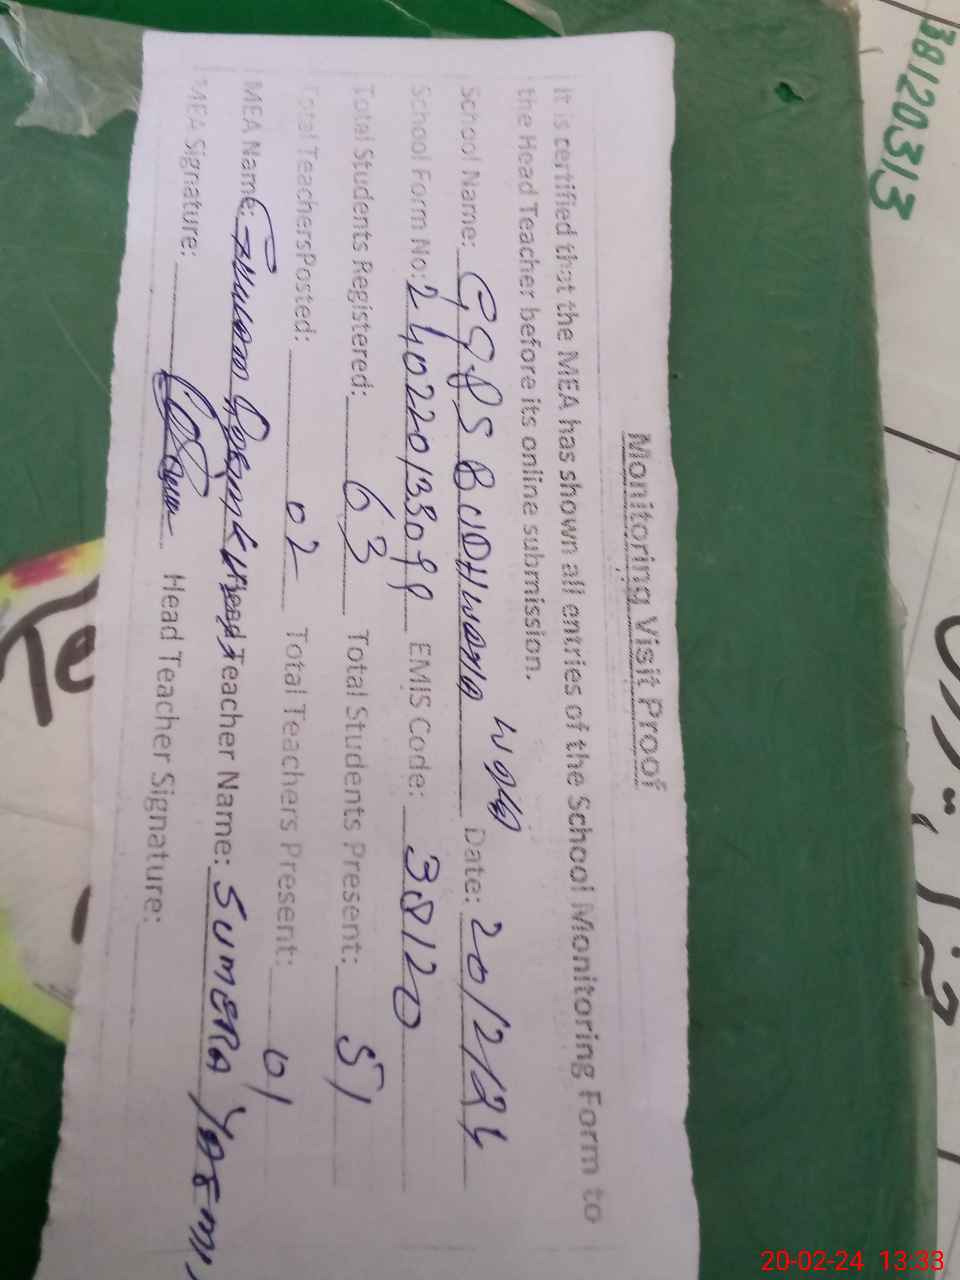 Monitoring Visit Proof
It is certified that the MEA has shown all entries of the School Monitoring Form to
the Head Teacher before its online submission.
School Name: GGPS BUDHWANA WALA Date: 20/2/24
School Form No: 2402201330 EMIS Code: 38120
Total Students Registered: 63 Total Students Present: 51
Total TeachersPosted: 02 Total Teachers Present: 01
MEA Name: Head Teacher Name: SUMERA
MEA Signature: Head Teacher Signature:
38120313
Te
20-02-24 13:33